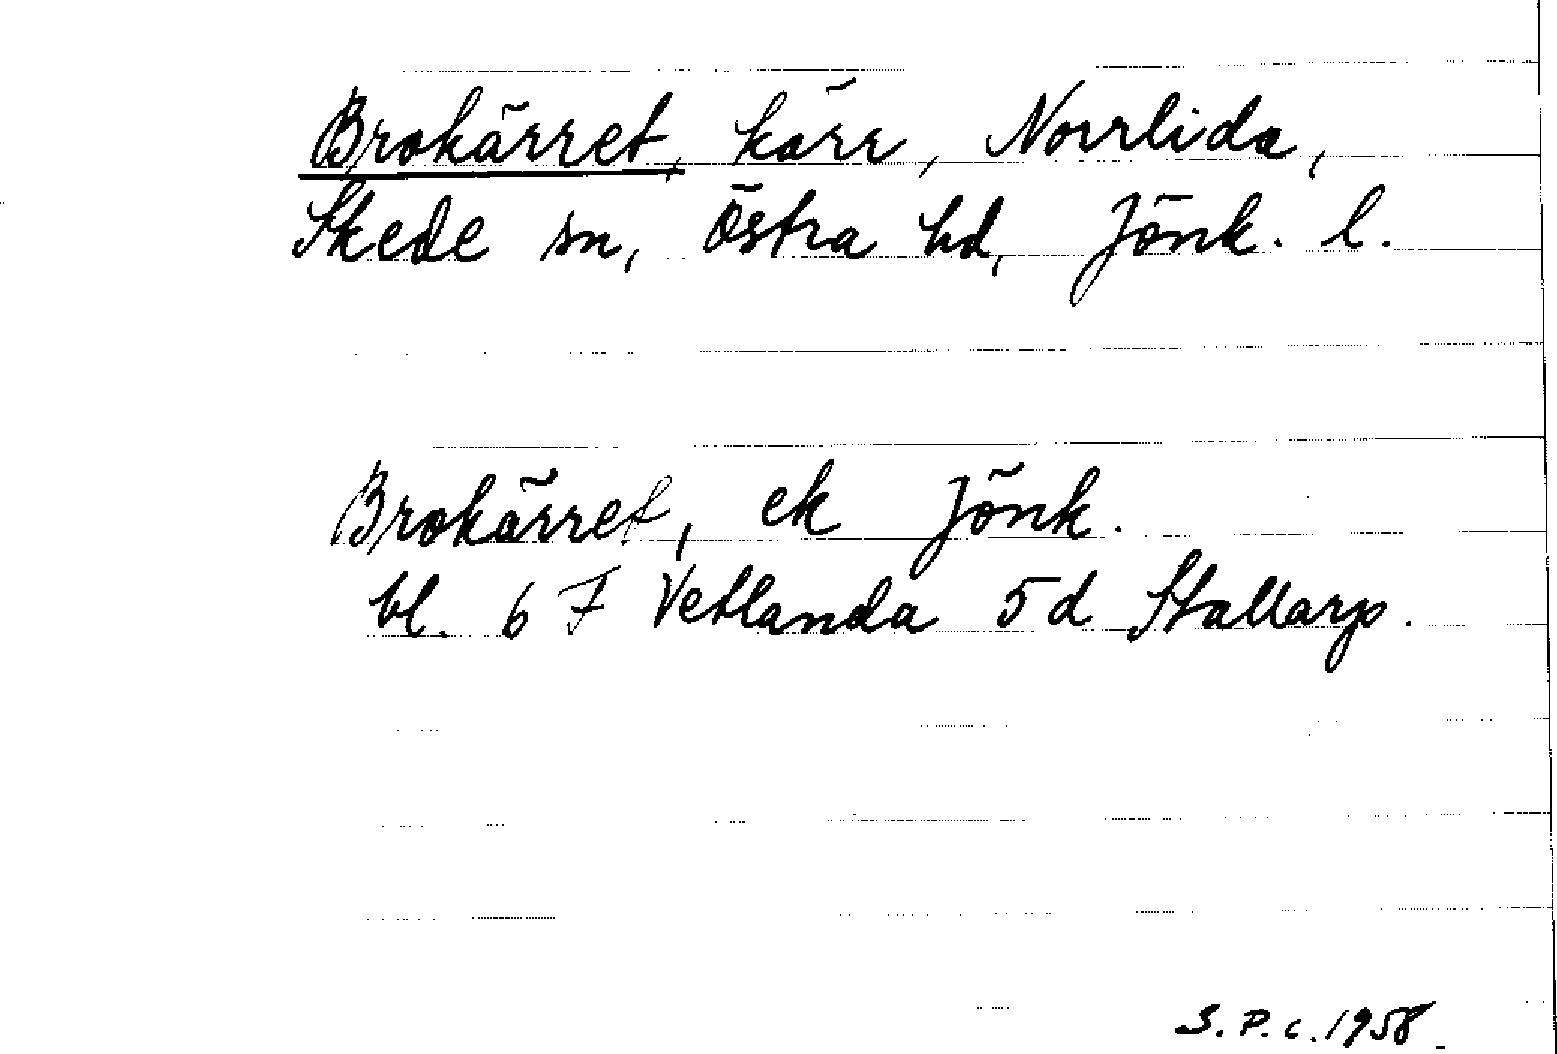 Brokärret, kärr, Norrlida,
Skede sn, Östra hd, Jönk. l.
Brokärret, ek Jönk.
bl. 6 F Vetlanda 5d Stallarp.
S.P.c.1958